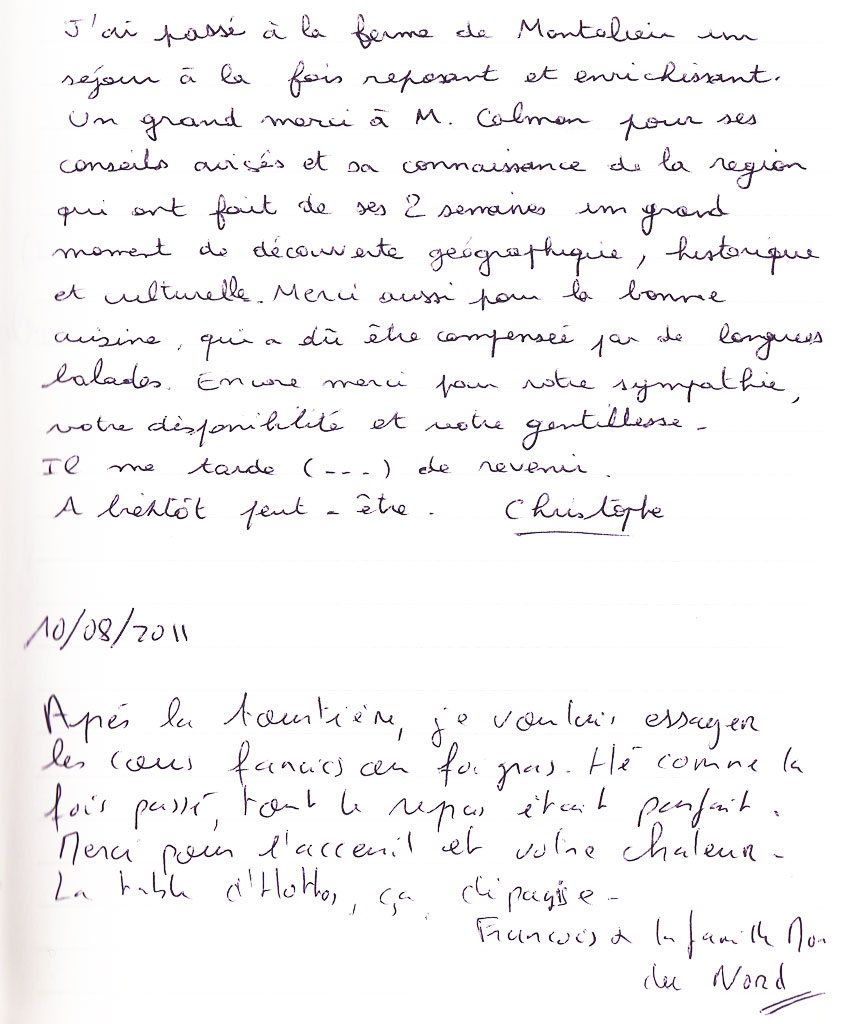 J'ai passé à la ferme de Montalieu un
séjour à la fois reposant et enrichissant.
Un grand merci à M. Colmon pour ses
conseils avisés et sa connaissance de la region
qui ont fait de ses 2 semaines un grand
moment de découverte géographique, historique
et culturelle. Merci aussi pour la bonne
cuisine, qui a dû être compensée par de longues
balades. Encore merci pour votre sympathie,
votre disponibilité et votre gentillesse -
Il me tarde (---) de revenir.
A bientôt peut-être. Christophe
10/08/2011
Après la tourtière, je voulais essayer
les cous farcies au foi gras. Hé comme la
fois passé, tout le repas était parfait.
Merci pour l'acceuil et votre chaleur -
La table d'Hottes, ça dépayse -
François & la famille
du Nord